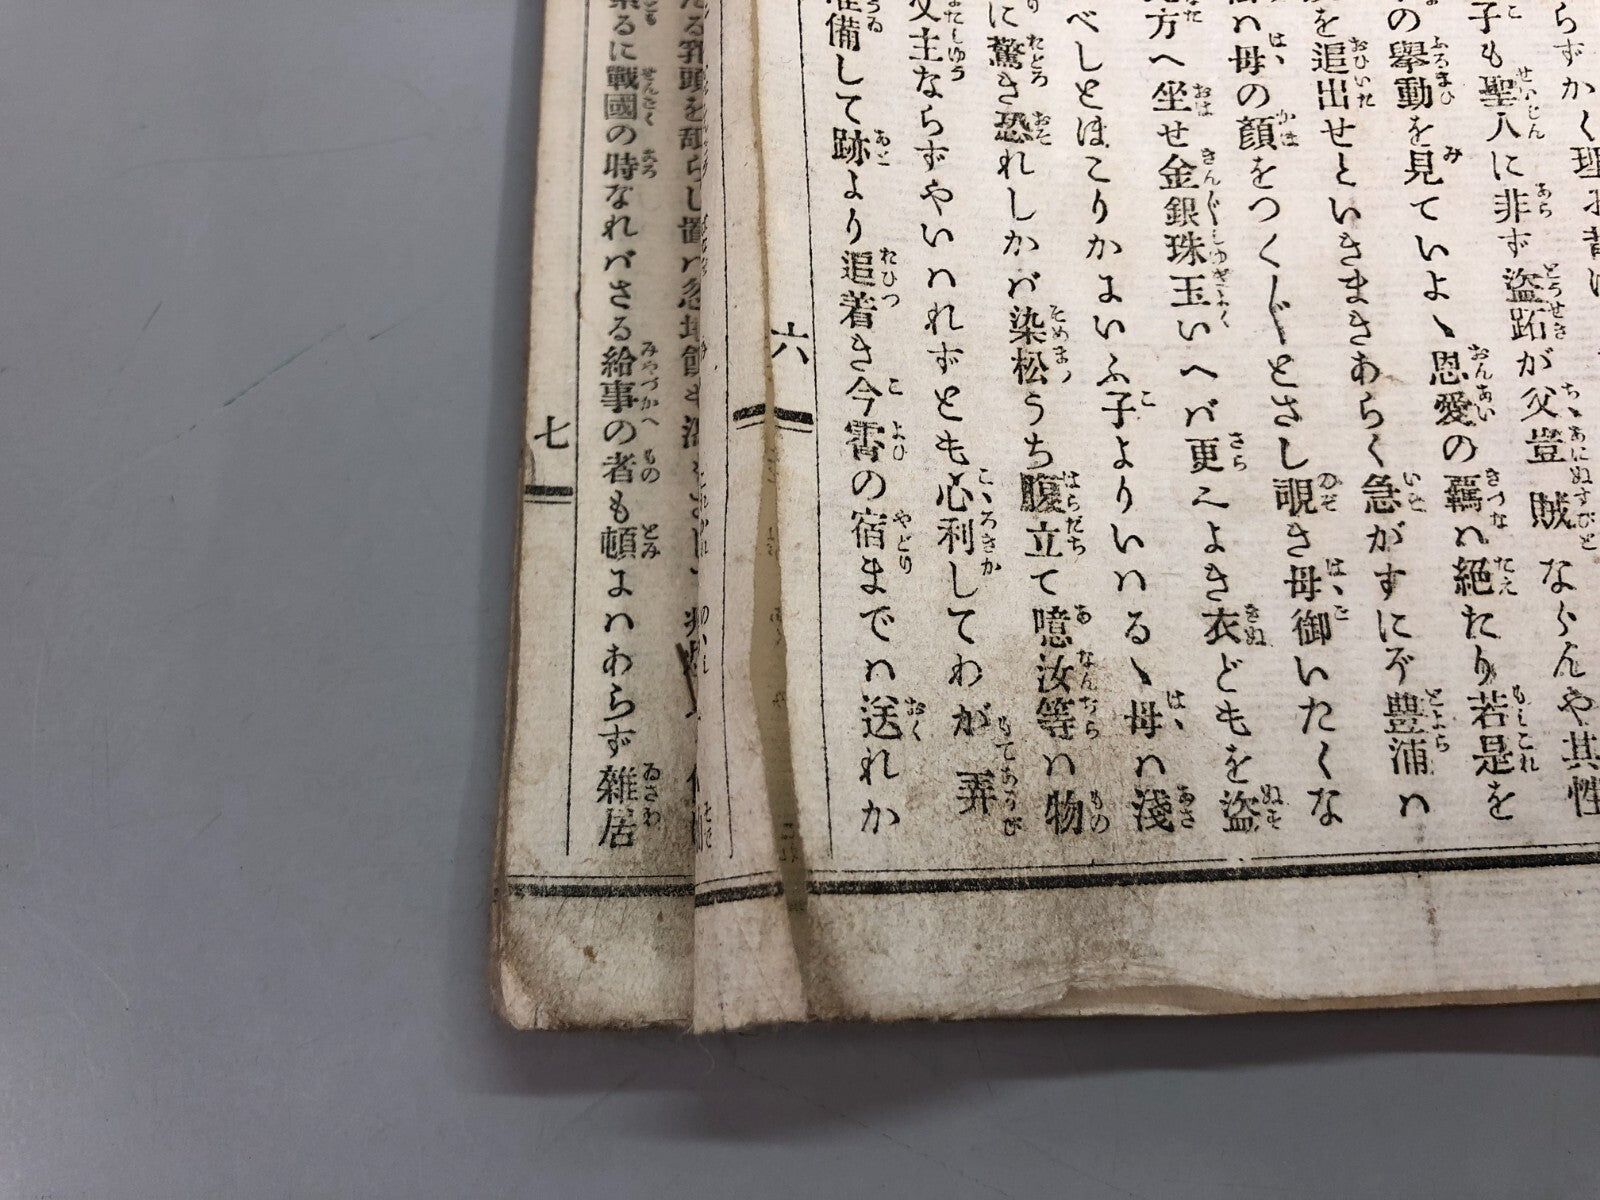 らずかく理
子も聖人に非ず盗跖が父豈賊ならんや其性
の舉動を見ていよゝ恩愛の羈ハ絶たり若是を
を追出せといきまきあらく急がすにぞ豊浦ハ
母の顔をつく〴〵とさし覗き母御いたくな
方へ坐せ金銀珠玉いへバ更之よき衣どもを盗
べしとほこりかまいふ子よりいハるゝ母ハ淺
に驚き恐れしかバ染松うち腹立て噫汝等ハ物
主ならずやいハれずとも心利してわが弄
備して跡より追着き今宵の宿までハ送れか
六
る乳頭を舐らし置バ忽地
るに戰國の時なれバさる給事の者も頓にハわらず雜居
七